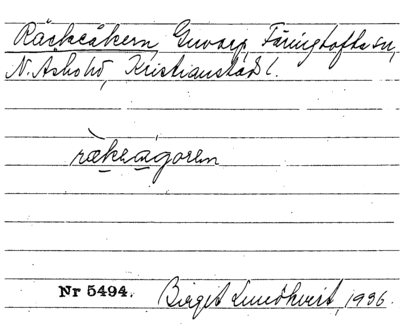 Räckeåkern, Gnvarp, Färingtofta sn,
N. Åsbo hd, Kristianstads l.
ràkeágoren
Nr 5494. Birgit Lundkvist, 1936.